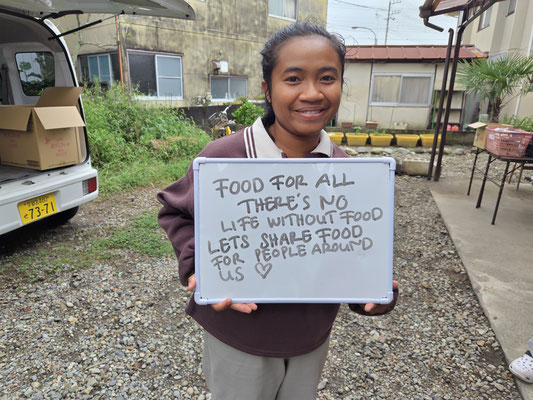 FOOD FOR ALL
THERE'S NO
LIFE WITHOUT FOOD
LETS SHARE FOOD
FOR PEOPLE AROUND
US ♡
73-71